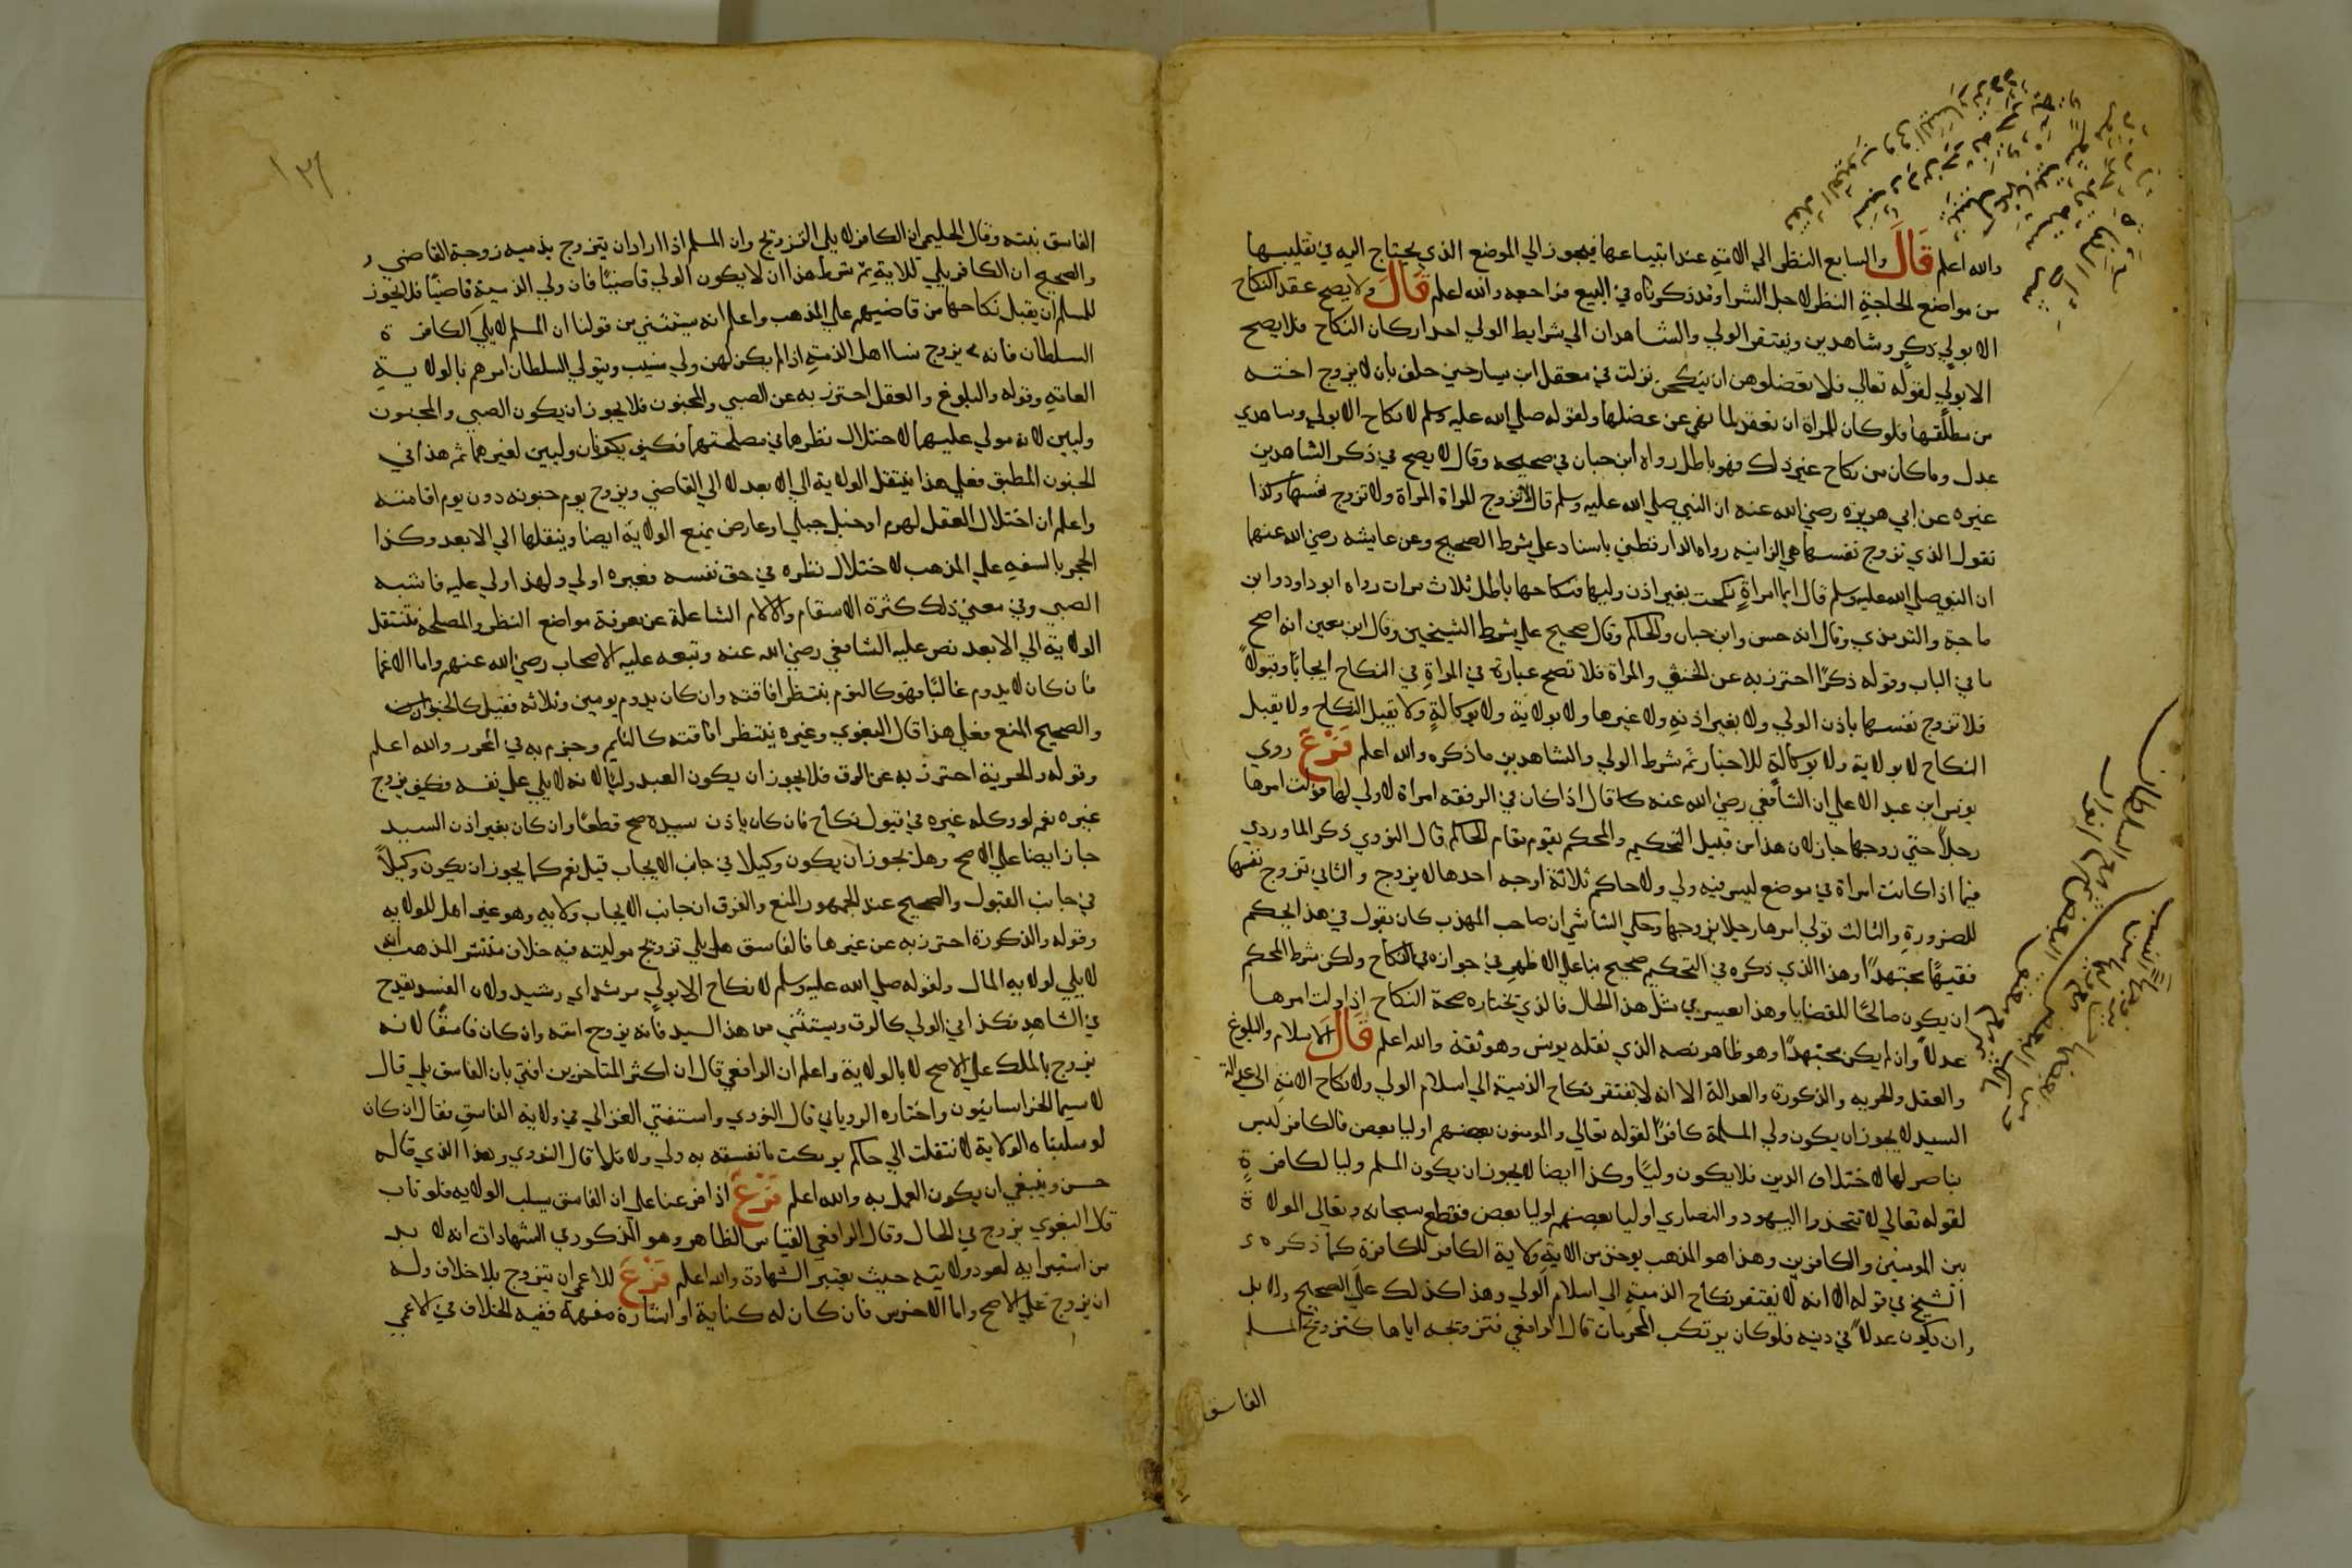 والله اعلم قال والسابع النظر الى الامة عند ابتياعها فيجوز الي الموضع الذي يحتاج اليه في تقليبها
من مواضع الحاجة النظر لاجل الشرا وقد ذكرناه في البيع فراجعه والله اعلم قال ولا يصح عقد النكاح
الا بولي ذكر وشاهدين ويفتقر الولي والشاهدان الي شرايط الولي احد اركان النكاح فلا يصح
الا بولي لقوله تعالي فلا تعضلوهن ان ينكحن نزلت في معقل ابن يسار حين حلف بان لا يزوج اخته
من مطلقها فلو كان للمراة ان تعقد لما نهي عن عضلها ولقوله صلي الله عليه وسلم لا نكاح الا بولي وشاهدي
عدل وما كان من نكاح غير ذلك فهو باطل رواه ابن حبان في صحيحه وقال لا يصح في ذكر الشاهدين
غيره عن ابي هريره رضي الله عنه ان النبي صلي الله عليه وسلم قال لا تزوج المراة المراة ولا تزوج نفسها وكنا
نقول الذي تزوج نفسها هي الزانيه رواه الدارقطني باسناد علي شرط الصحيح وعن عايشه رضي الله عنها
ان النبي صلي الله عليه وسلم قال ايما امراةٍ نكحت بغير اذن وليها فنكاحها باطل ثلاث مرات رواه ابو داود وابن
ماجة والترمذي وقال انه حسن وابن حبان والحاكم وقال صحيح علي شرط الشيخين وقال ابن معين انه اصح
ما في الباب وقوله ذكرًا احترز به عن الخنثي والمراة فلا تصح عبارة في المراة في النكاح ايجابًا وقبولاً
فلا تزوج نفسها باذن الولي ولا بغير اذنه ولا غيرها ولا بولاية ولا بوكالةٍ ولا يقبل النكاح ولا يقبل
النكاح لا بولاية ولا بوكالةٍ للاخبار ثم شرط الولي والشاهدين ما ذكره والله اعلم فرع روي
يونس ابن عبد الاعلي ان الشافعي رضي الله عنه قال اذا كان في الرفقه امراة لا ولي لها فولت امرها
رجلاً حتي زوجها جاز لان هذا من قبيل التحكيم والمحكم يقوم مقام الحاكم قال النووي ذكر الماوردي
فيما اذا كانت امراة في موضع ليس فيه ولي ولا حاكم ثلاثة اوجه احدها لا يزوج والثاني تزوج نفسها
للضرورة والثالث تولي امرها رجلا يزوجها وحكي الشاشي ان صاحب المهذب كان يقول في هذا بحكم
فقيهًا مجتهدًا وهذا الذي ذكره في التحكيم صحيح بنا علي الاظهر في جوازه في النكاح ولكن شرط المحكم
ان يكون صالحًا للقضايا وهذا يعسر في مثل هذا الحال فالذي يختاره صحة النكاح اذا ولت امرها
عدلاً وان لم يكن مجتهدًا وهو ظاهر نصه الذي نقله يونس وهو ثقة والله اعلم قال الاسلام والبلوغ
والعقل والحريه والذكورة والعدالة الا انه لا يفتقر نكاح الذمية الي اسلام الولي ولا نكاح الامة الي عدالة
السيد لا يجوز ان يكون ولي المسلمة كافرًا لقوله تعالي والمومنون بعضهم اوليا بعض فالكافر ليس
بناصر لها لاختلاف الدين فلا يكون وليًا وكذا ايضا لا يجوز ان يكون المسلم وليا لكافرة
لقوله تعالي لا تتخذوا اليهود والنصاري اوليا بعضهم اوليا بعض فقطع سبحانه وتعالي الموالاة
بين المومنين والكافرين وهذا هو المذهب يوخذ من الاية ولاية الكافر للكافرة كما ذكره
الشيخ في قوله الا انه لا يفتقر نكاح الذمية الي اسلام الولي وهذا كذلك علي الصحيح ولا بد
وان يكون عدلاً في دينه فلو كان يرتكب المحرمات قال الرافعي فتزويجه اياها كتزويج المسلم
الفاسق
الفاسق بنته وقال الحليمي ان الكافر لا يلي التزويج وان المسلم اذا اراد ان يتزوج بذميه زوجه القاضي و
والصحيح ان الكافر يلي للاية ثم شرط هذا ان لا يكون الولي قاضيًا فان ولي الذمية قاضيًا فلا يجوز
للمسلم ان يقبل نكاحها من قاضيهم علي المذهب واعلم انه يستثني من قولنا ان المسلم لا يلي الكافرة
السلطان فانه يزوج نسا اهل الذمة اذا لم يكن لهن ولي نسيب ويتولي السلطان امرهم بالولاية
العامة وقوله والبلوغ والعقل احترز به عن الصبي والمجنون فلا يجوز ان يكون الصبي والمجنون
وليين لانه مولي عليهما لاختلال نظرهما في مصلحتهما فكيف يكونان وليين لغيرهما ثم هذا في
الجنون المطبق فعلي هذا ينتقل الولاية الي الابعد لا الي القاضي ويزوج يوم جنونه دون يوم افاقته
واعلم ان اختلال العقل لهرم او خبل جبلي او عارض يمنع الولاية ايضا وينقلها الي الابعد وكذا
الحجر بالسفه علي المذهب لاختلال نظره في حق نفسه فغيره اولي ولهذا ولي عليه فاشبه
الصبي وفي معني ذلك كثرة الاسقام والالام الشاغلة عن معرفة مواضع النظر والمصلحه فتنتقل
الولاية الي الابعد نص عليه الشافعي رضي الله عنه وتبعه عليه الاصحاب رضي الله عنهم واما الاغما
فان كان لا يدوم غالبًا فهو كالنوم ينتظر افاقته وان كان يدوم يومين وثلاثه فقيل كالجنون
والصحيح المنع فعلي هذا قال البغوي وغيره ينتظر افاقته كالنايم وجزم به في المحرر والله اعلم
وقوله والحرية احترز به عن الرق فلا يجوز ان يكون العبد وليًا لانه لا يلي علي نفسه فكيف يزوج
غيره نعم لو وكله غيره في قبول نكاح فان كان باذن سيده صح قطعًا وان كان بغير اذن السيد
جاز ايضا علي الاصح وهل يجوز ان يكون وكيلا في جانب الايجاب قيل نعم كما يجوز ان يكون وكيلاً
في جانب القبول والصحيح عند الجمهور المنع والفرق ان جانب الايجاب ولايه وهو غير اهل للولايه
وقوله والذكورة احترز به عن غيرها فالفاسق هل يلي تزويج موليته فيه خلاف منتشر المذهب انه
لا يلي لولايه المال ولقوله صلي الله عليه وسلم لا نكاح الا بولي مرشد اي رشيد ولان الفسق يقدح
في الشاهد فكذا في الولي كالرق ويستثني من هذا السيد فانه يزوج امته وان كان فاسقًا لانه
يزوج بالملك علي الاصح لا بالولاية واعلم ان الرافعي قال ان اكثر المتاخرين افتي بان الفاسق يلي قال
لا سيما الخراسانيون واختاره الروياني قال النووي واستفتي الغزالي في ولاية الفاسق فقال ان كان
لو سلبناه الولاية لانتقلت الي حاكم يرتكب ما نفسقه به ولي ولا فلا قال النووي وهذا الذي قاله
حسن وينبغي ان يكون العمل به والله اعلم فرع اذا فرعنا علي ان الفاسق يسلب الولايه فلو تاب
قال البغوي يزوج في الحال وقال الرافعي القياس الظاهر وهو المذكور في الشهادات انه لا بد
من استبرايه لعود ولايته حيث يعتبر الشهادة والله اعلم فرع للاعمي ان يتزوج بلا خلاف وله
ان يزوج علي الاصح واما الاخرس فان كان له كتابة او اشارة مفهمة ففيه الخلاف في الاعمي